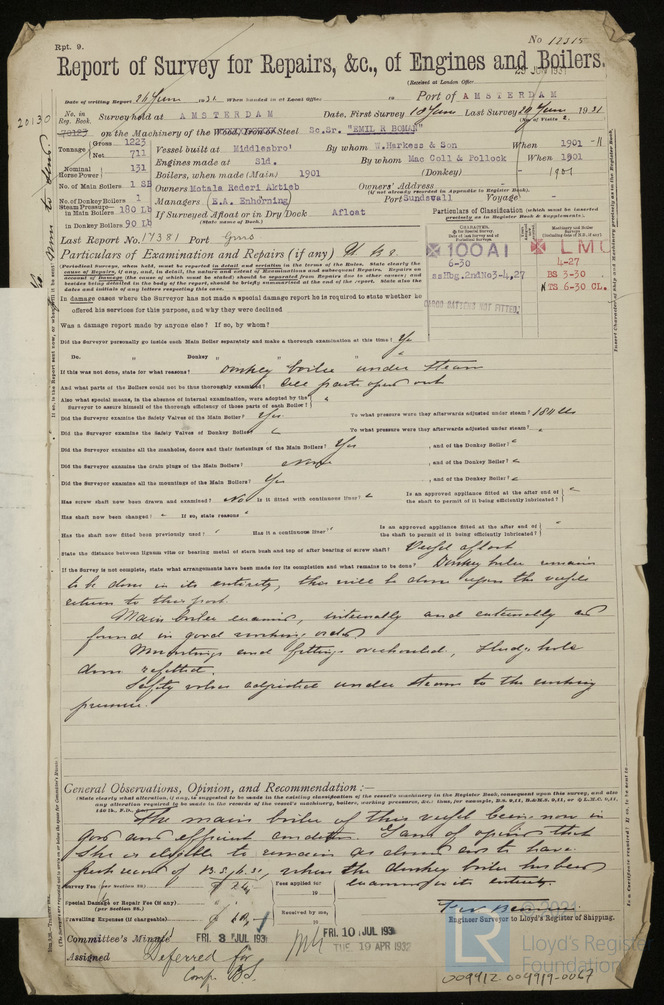 Rpt. 9.
No 12315
Report of Survey for Repairs, &c., of Engines and Boilers.
(Received at London Office 29 JUN 1931
Date of writing Report 24 June 1931 When handed in at Local Office 19 Port of AMSTERDAM
No. in Reg. Book. Survey held at AMSTERDAM Date, First Survey 18 June Last Survey 20 June 1931
20130
70127 on the Machinery of the Wood, Iron or Steel Sc.Sr. "EMIL R BOMAN" (No. of Visits 2.
Tonnage Gross 1223 Net 711 Vessel built at Middlesbro' By whom W.Harkess & Son When 1901 -11
Nominal Horse Power 131 Engines made at Sld. By whom Mac Coll & Pollock When 1901
Boilers, when made (Main) 1901 (Donkey) - 1901
No. of Main Boilers 1 SB Owners Motala Rederi Aktieb Owners' Address
(if not already recorded in Appendix to Register Book).
No. of Donkey Boilers 1 Managers (E.A. Enhörning) Port Sundsvall Voyage
Steam Pressure— in Main Boilers 180 Lb If Surveyed Afloat or in Dry Dock Afloat
in Donkey Boilers 90 Lb (State name of Dock.)
Particulars of Classification (which must be inserted precisely as in Register Book & Supplements).
Last Report No. 17381 Port
Particulars of Examination and Repairs (if any)
100A1
6-30
ssHbg.2ndNo3-4,27
CARGO BATTENS NOT FITTED.
LMC
4-27
BS 3-30
TS 6-30 CL.
In damage cases where the Surveyor has not made a special damage report he is required to state whether he
offered his services for this purpose, and why they were declined
Was a damage report made by anyone else? If so, by whom?
Did the Surveyor personally go inside each Main Boiler separately and make a thorough examination at this time? Yes
Do. " Donkey " " " "
If this was not done, state for what reasons? Donkey boiler under steam
And what parts of the Boilers could not be thus thoroughly examined? See parts open out
Also what special means, in the absence of internal examination, were adopted by the
Surveyor to assure himself of the thorough efficiency of those parts of each Boiler?
Did the Surveyor examine the Safety Valves of the Main Boiler? Yes To what pressure were they afterwards adjusted under steam? 180 lbs
Did the Surveyor examine the Safety Valves of Donkey Boiler? " To what pressure were they afterwards adjusted under steam?
Did the Surveyor examine all the manholes, doors and their fastenings of the Main Boilers? Yes , and of the Donkey Boiler? "
Did the Surveyor examine the drain plugs of the Main Boilers? None , and of the Donkey Boiler? "
Did the Surveyor examine all the mountings of the Main Boilers? Yes , and of the Donkey Boiler? "
Has screw shaft now been drawn and examined? No Is it fitted with continuous liner? " Is an approved appliance fitted at the after end of the shaft to permit of it being efficiently lubricated? "
Has shaft now been changed? " If so, state reasons "
Has the shaft now fitted been previously used? " Has it a continuous liner? " Is an approved appliance fitted at the after end of the shaft to permit of it being efficiently lubricated? "
State the distance between lignum vitæ or bearing metal of stern bush and top of after bearing of screw shaft? Vessel afloat
If the Survey is not complete, state what arrangements have been made for its completion and what remains to be done? Donkey boiler remains
to be done in its entirety, this will be done upon the vessels
return to this port.
Main boiler examined, internally and externally and
found in good working order
Mountings and fittings overhauled, sludge hole
door refitted.
Safety valves adjusted under steam to the working
pressure.
General Observations, Opinion, and Recommendation:—
(State clearly what alteration, if any, is suggested to be made in the existing classification of the vessel's machinery in the Register Book, consequent upon this survey, and also
any alteration required to be made in the records of the vessel's machinery, boilers, working pressures, &c.: thus, for example, B.S. 9,11, B.&M.S. 9,11, or LMC 9,11,
The main boiler of this vessel being now in
good and efficient condition. I am of opinion that
she is eligible to remain as classed and to have
fresh record of B.S. 6.31, when the donkey boiler has been
examined in its entirety.
Survey Fee (per Section 29.)
Special Damage or Repair Fee (if any).
(per Section 29.)
Travelling Expenses (if chargeable).
Fees applied for 19
Received by me, 19
Engineer Surveyor to Lloyd's Register of Shipping.
Committee's Minute FRI. 3 JUL 1931 FRI. 10 JUL 1931
TUE 19 APR 1932
Assigned Deferred for
Comp. BS.
© 2021
LR Lloyd's Register Foundation
004912-004919-0067